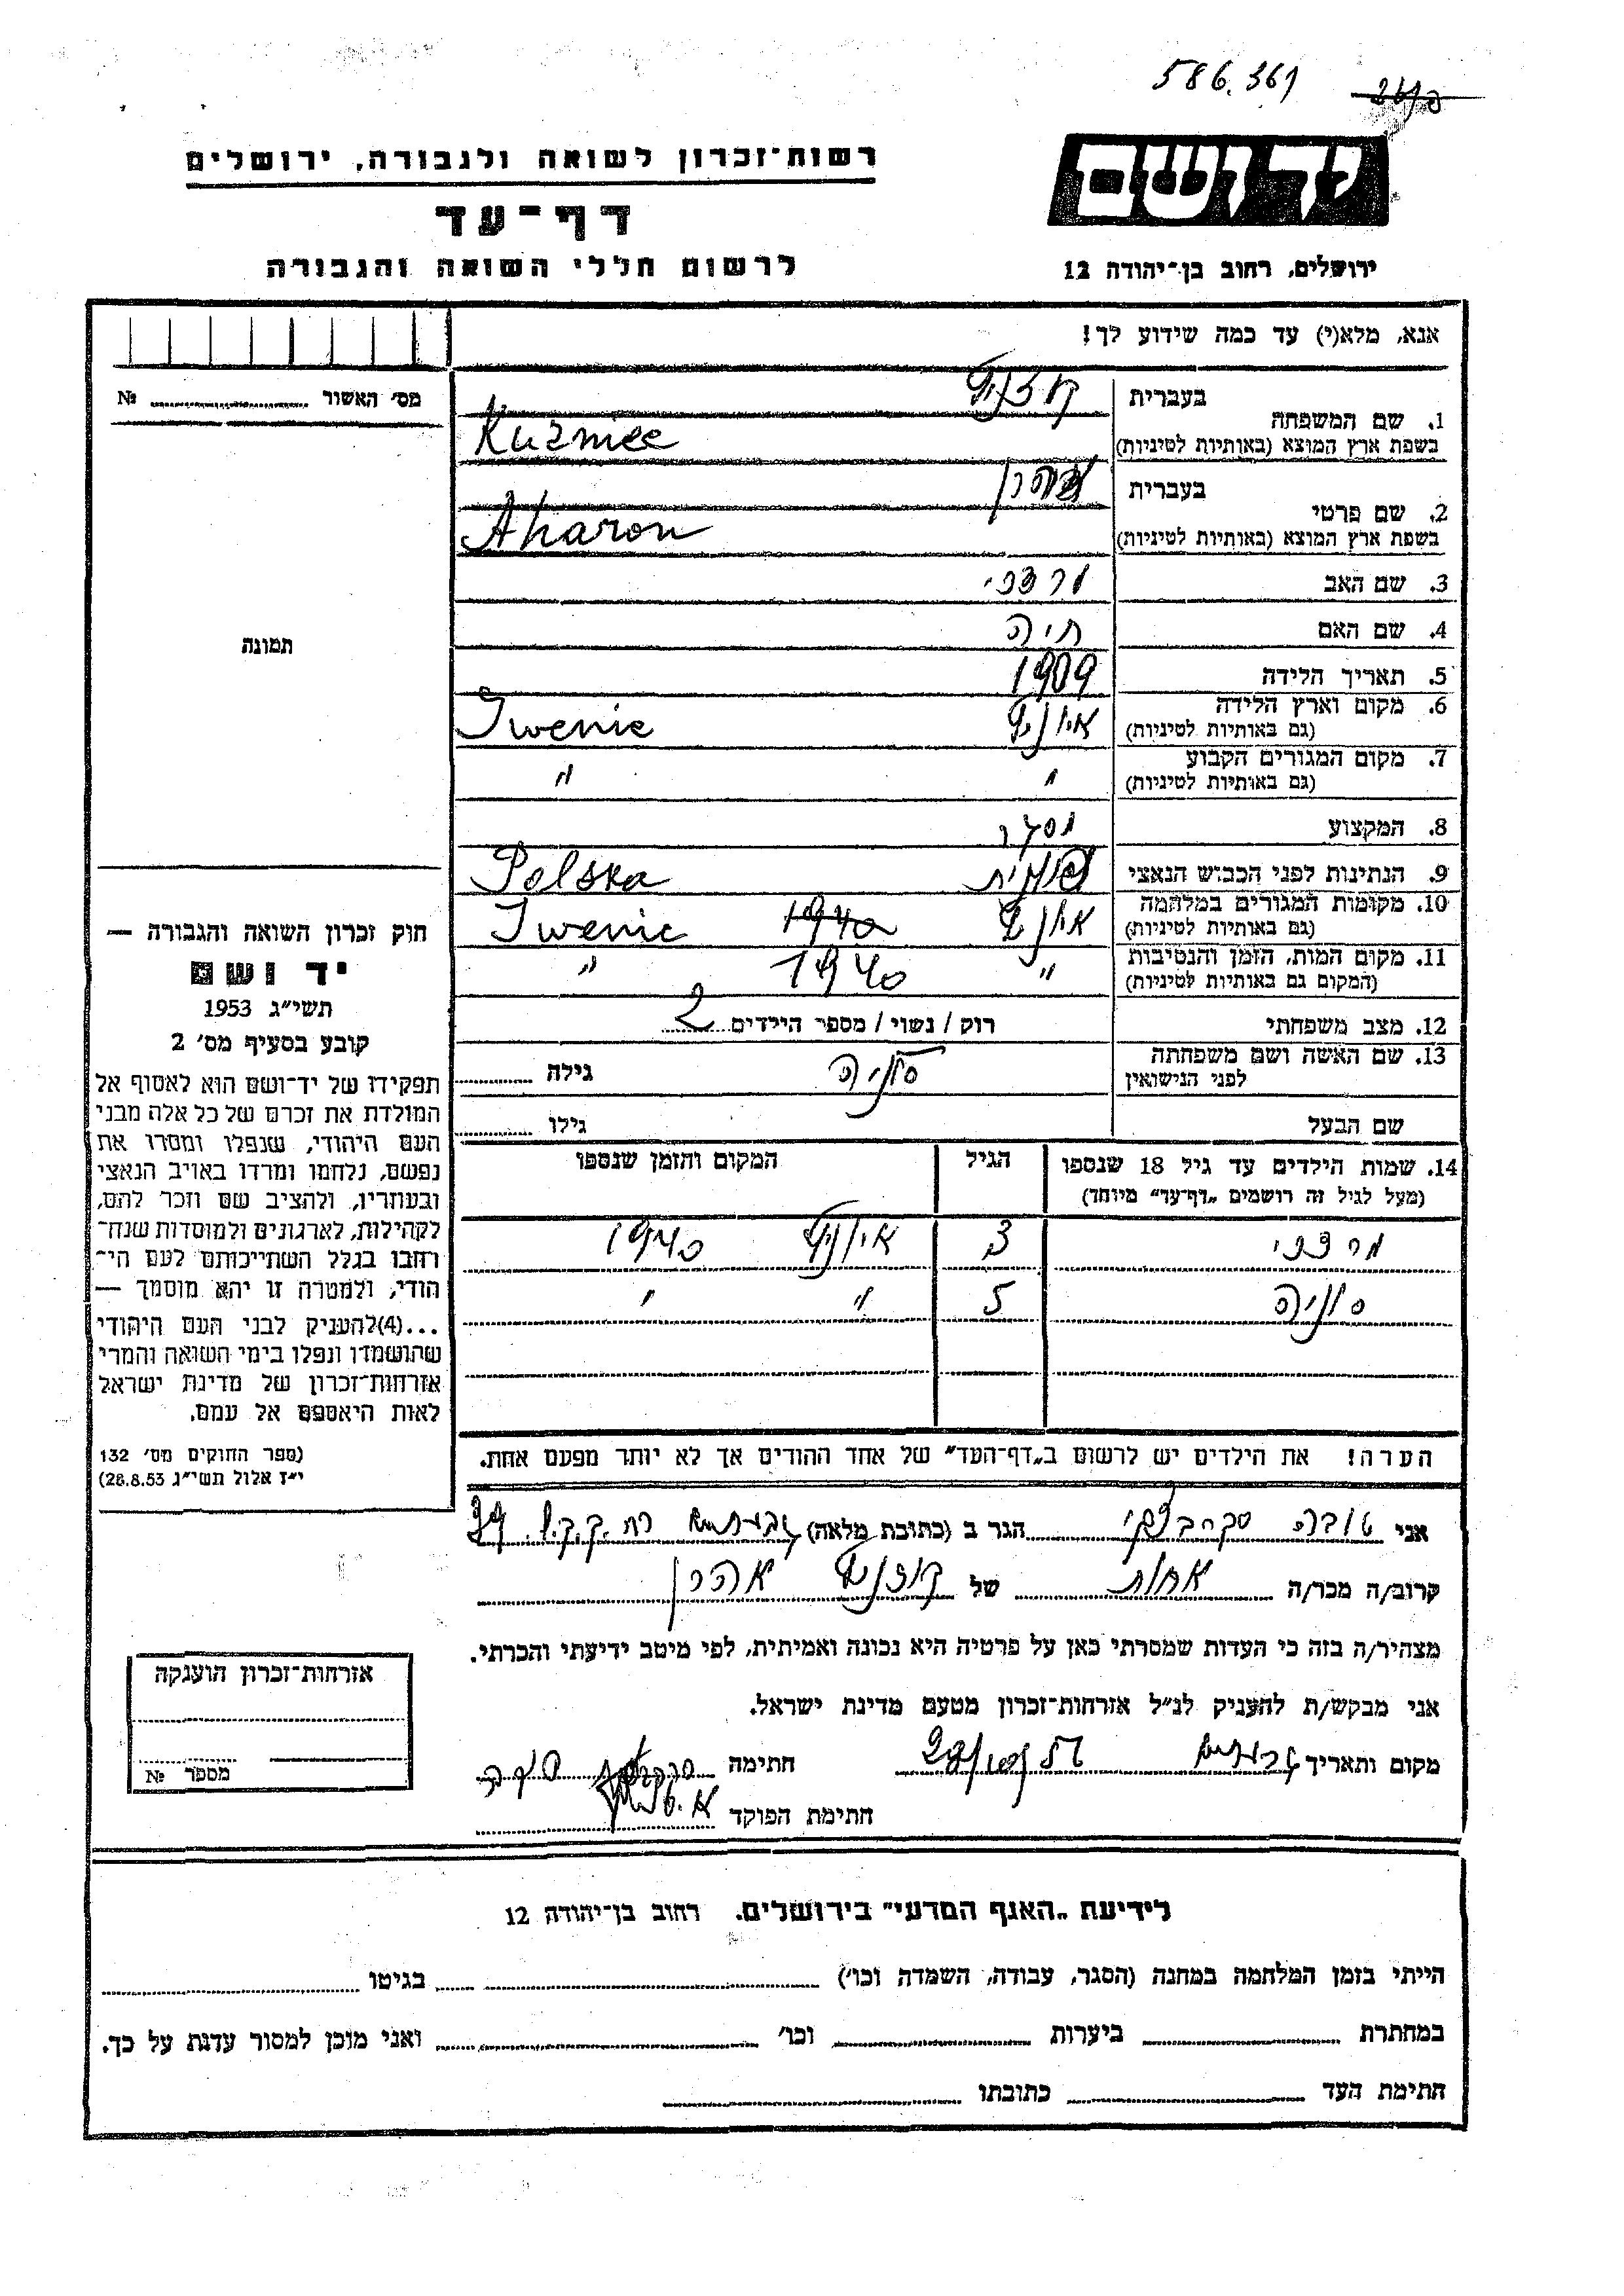 586.361
רשות־זכרון לשואה ולגבורה, ירושלים
דף־עד
לרשום חללי השואה והגבורה
יד ושם
ירושלים, רחוב בן־יהודה 12
אנא, מלא(י) עד כמה שידוע לך!
מס׳ האשור № 
1. שם המשפחה בעברית
בשפת ארץ המוצא (באותיות לטיניות) Kuzniec
2. שם פרטי בעברית אהרן
בשפת ארץ המוצא (באותיות לטיניות) Aharon
3. שם האב מרדכי
4. שם האם חיה
5. תאריך הלידה 1909
6. מקום וארץ הלידה
(גם באותיות לטיניות) Iwenic
7. מקום המגורים הקבוע " "
(גם באותיות לטיניות)
8. המקצוע
9. הנתינות לפני הכבוש הנאצי פולנית Polska
10. מקומות המגורים במלחמה 1940 Iwenic
(גם באותיות לטיניות)
11. מקום המות, הזמן והנסיבות " 1940 "
(המקום גם באותיות לטיניות)
12. מצב משפחתי רוק / נשוי / מספר הילדים 2
13. שם האשה ושם משפחתה סוניה גילה
לפני הנישואין
שם הבעל גילו
14. שמות הילדים עד גיל 18 שנספו הגיל המקום והזמן שנספו
(מעל לגיל זה רושמים „דף־עד” מיוחד)
מרדכי 3 1940
סוניה 5 " "
הערה! את הילדים יש לרשום ב„דף־העד” של אחד ההורים אך לא יותר מפעם אחת.
תמונה
חוק זכרון השואה והגבורה —
יד ושם
תשי״ג 1953
קובע בסעיף מס׳ 2
תפקידו של יד־ושם הוא לאסוף אל
המולדת את זכרם של כל אלה מבני
העם היהודי, שנפלו ומסרו את
נפשם, נלחמו ומרדו באויב הנאצי
ובעוזריו, ולהציב שם וזכר להם,
לקהילות, לארגונים ולמוסדות שנח־
רחבו בגלל השתייכותם לעם הי־
הודי, ולמטרה זו יהא מוסמך —
...(4)להעניק לבני העם היהודי
שהושמדו ונפלו בימי השואה והמרי
אזרחות־זכרון של מדינת ישראל
לאות היאספם אל עמם.
(ספר החוקים מס׳ 132
י״ז אלול תשי״ג 28.8.53)
אני טובה הגר ב (כתובת מלאה) גבעתיים רח. ק.ק.ל
קרוב/ה מכר/ה אחות של אהרן
מצהיר/ה בזה כי העדות שמסרתי כאן על פרטיה היא נכונה ואמיתית, לפי מיטב ידיעתי והכרתי.
אני מבקש/ת להעניק לנ״ל אזרחות־זכרון מטעם מדינת ישראל.
מקום ותאריך גבעתיים חתימה
חתימת הפוקד
אזרחות־זכרון הוענקה
מספר №
לידיעת „האגף המדעי” בירושלים. רחוב בן־יהודה 12
הייתי בזמן המלחמה במחנה (הסגר, עבודה, השמדה וכו׳) בגיטו
במחתרת ביערות וכו׳ ואני מוכן למסור עדות על כך.
חתימת העד כתובתו